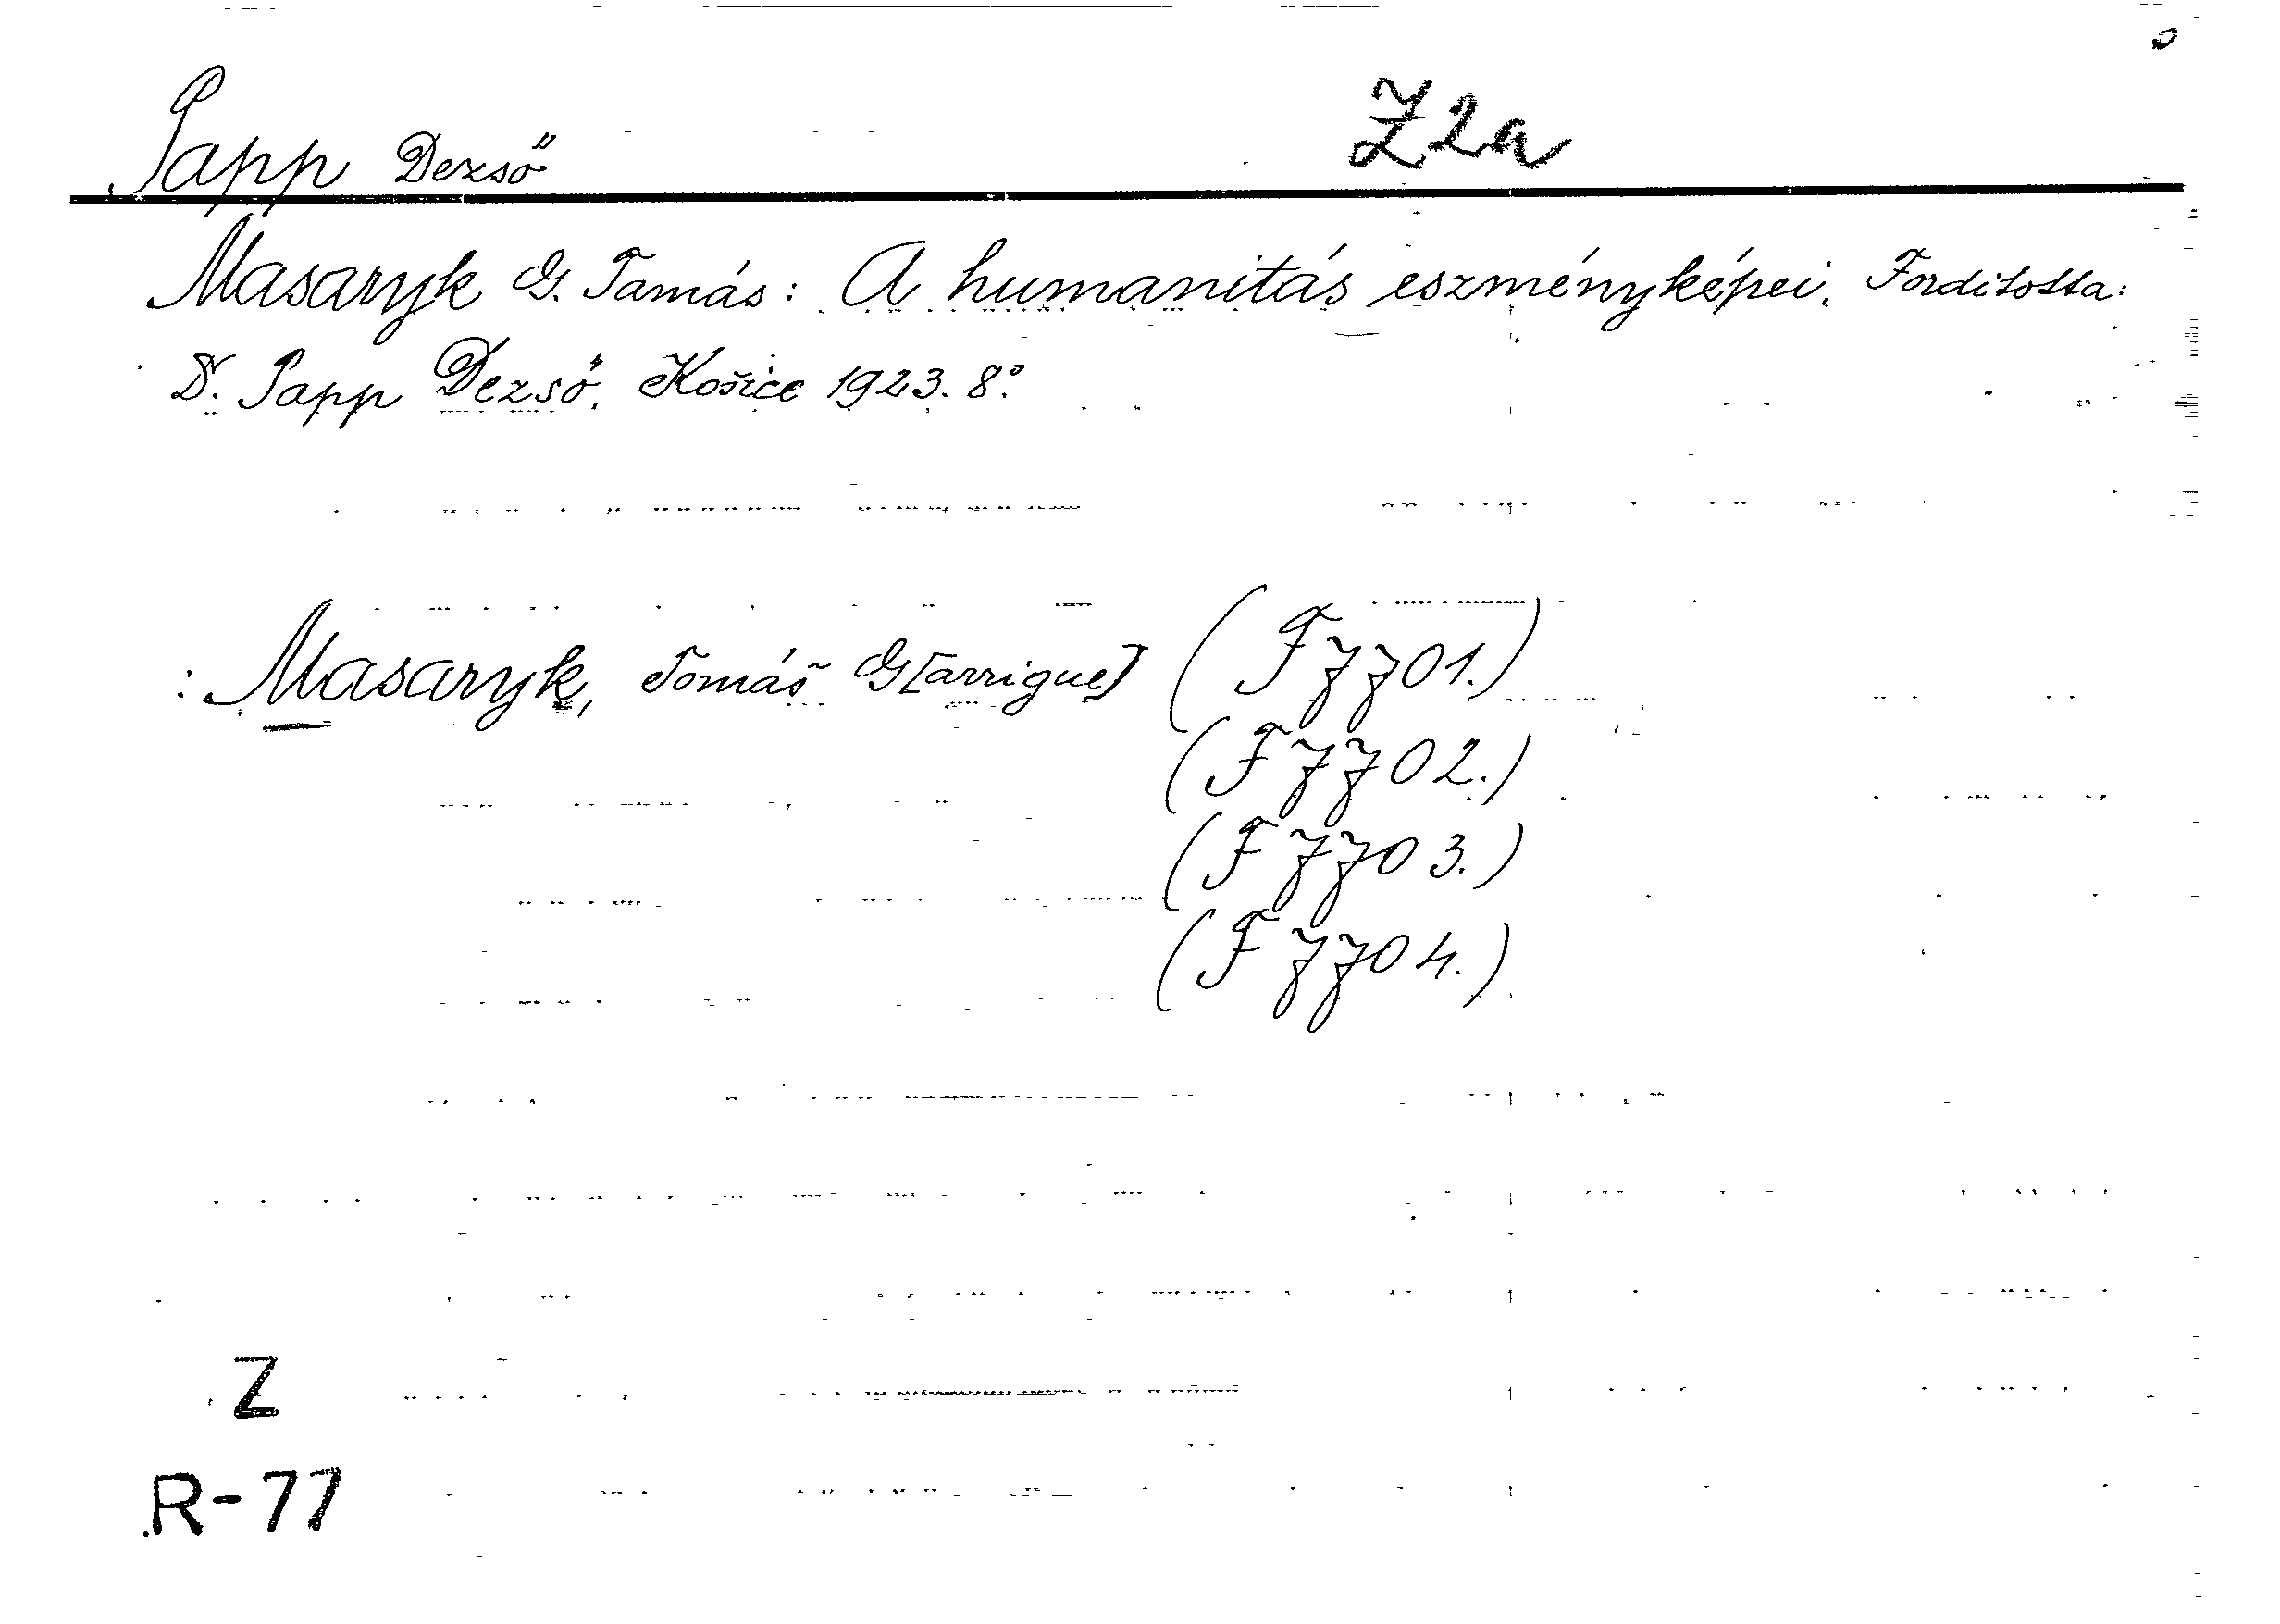 Papp Dezső Z2a
Masaryk G. Tamás: A humanitás eszményképei. Fordította:
Dr. Papp Dezső. Košice 1923. 8°.
: Masaryk, Tomáš G[arrigue] (F 7701.)
(F 7702.)
(F 7703.)
(F 7704.)
Z
R-77